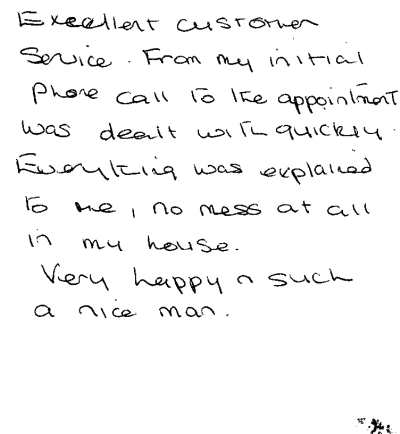 Excellent customer
Service. From my initial
phone call to the appointment
was dealt with quickly.
Everything was explained
to me, no mess at all
in my house.
Very happy n such
a nice man.